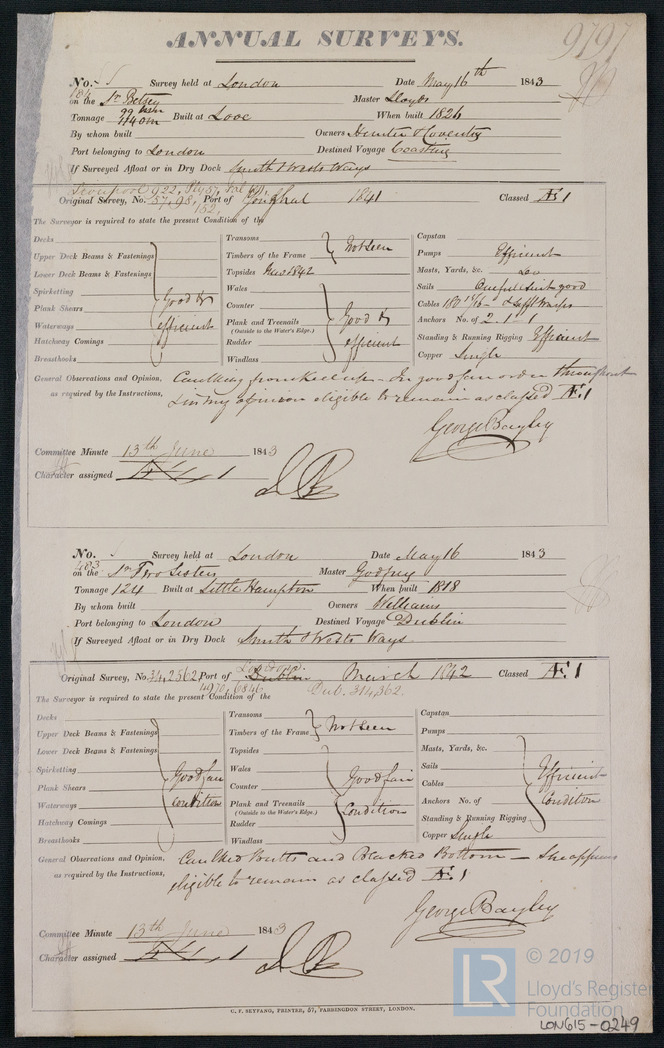 ANNUAL SURVEYS.
9797
No. Survey held at London Date May 16th 1843
184
on the Sr Betsey Master Lloyds
Tonnage 99 nm 114 om Built at Looe When built 1826
By whom built Owners Hunter & Coventry
Port belonging to London Destined Voyage Coasting
If Surveyed Afloat or in Dry Dock Smith & Wests Ways
Liverpool 922,
Original Survey, No. 57, 98, 152, Port of Youghal 1841 Classed Æ 1
The Surveyor is required to state the present Condition of the
Decks
Upper Deck Beams & Fastenings
Lower Deck Beams & Fastenings
Spirketting
Plank Shears
Waterways
Hatchway Comings
Breasthooks
Good & efficient
Transoms
Timbers of the Frame
Not seen
Topsides New 1842
Wales
Counter
Plank and Treenails
(Outside to the Water's Edge.)
Rudder
Windlass
Good & efficient
Capstan
Pumps Efficient
Masts, Yards, &c. Do
Sails One full suit good
Cables
Anchors No. of 2 . 1 . 1
Standing & Running Rigging Efficient
Copper Single
General Observations and Opinion, Caulking from keel up. In good fair order throughout
as required by the Instructions, & in my opinion eligible to remain as classed Æ 1
George Bayley
Committee Minute 13th June 1843
Character assigned Æ 1
No. Survey held at London Date May 16 1843
483
on the Sr Two Sisters Master Godfrey
Tonnage 124 Built at Little Hampton When built 1818
By whom built Owners Williams
Port belonging to London Destined Voyage Dublin
If Surveyed Afloat or in Dry Dock Smith & Wests Ways
Original Survey, No. 34,2562 Port of Dublin March 1842 Classed Æ 1
4970, 6846 Dub. 314,362.
The Surveyor is required to state the present Condition of the
Decks
Upper Deck Beams & Fastenings
Lower Deck Beams & Fastenings
Spirketting
Plank Shears
Waterways
Hatchway Comings
Breasthooks
Good fair condition
Transoms
Timbers of the Frame
Not seen
Topsides
Wales
Counter
Plank and Treenails
(Outside to the Water's Edge.)
Rudder
Windlass
Good fair Condition
Capstan
Pumps
Masts, Yards, &c.
Sails
Cables
Anchors No. of
Standing & Running Rigging
Efficient Condition
Copper Single
General Observations and Opinion, Caulked Butts and Blacked Bottom — She appears
as required by the Instructions, eligible to remain as classed Æ 1
George Bayley
Committee Minute 13th June 1843
Character assigned Æ 1
C. F. SEYFANG, PRINTER, 57, FARRINGDON STREET, LONDON.
LR
© 2019
Lloyd's Register
Foundation
LON615-0249